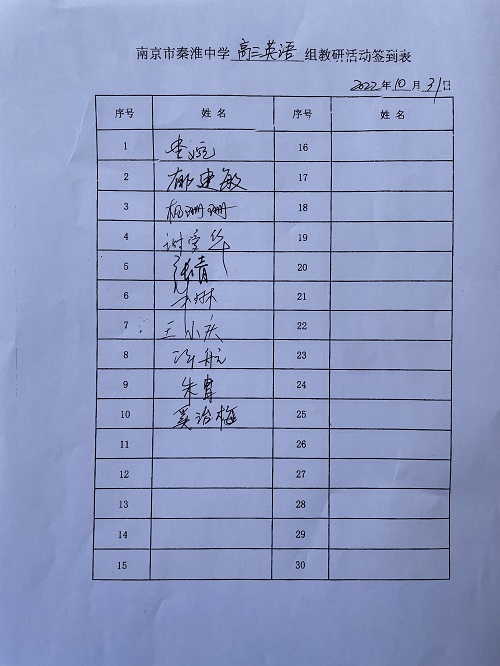 南京市秦淮中学 高三英语 组教研活动签到表
2022年10月31日
序号 姓名 序号 姓名
1 16
2 郁建敏 17
3 杨珊珊 18
4 谢爱华 19
5 张青 20
6 朱琳 21
7 王小庆 22
8 冯航 23
9 朱 24
10 奚治梅 25
11 26
12 27
13 28
14 29
15 30